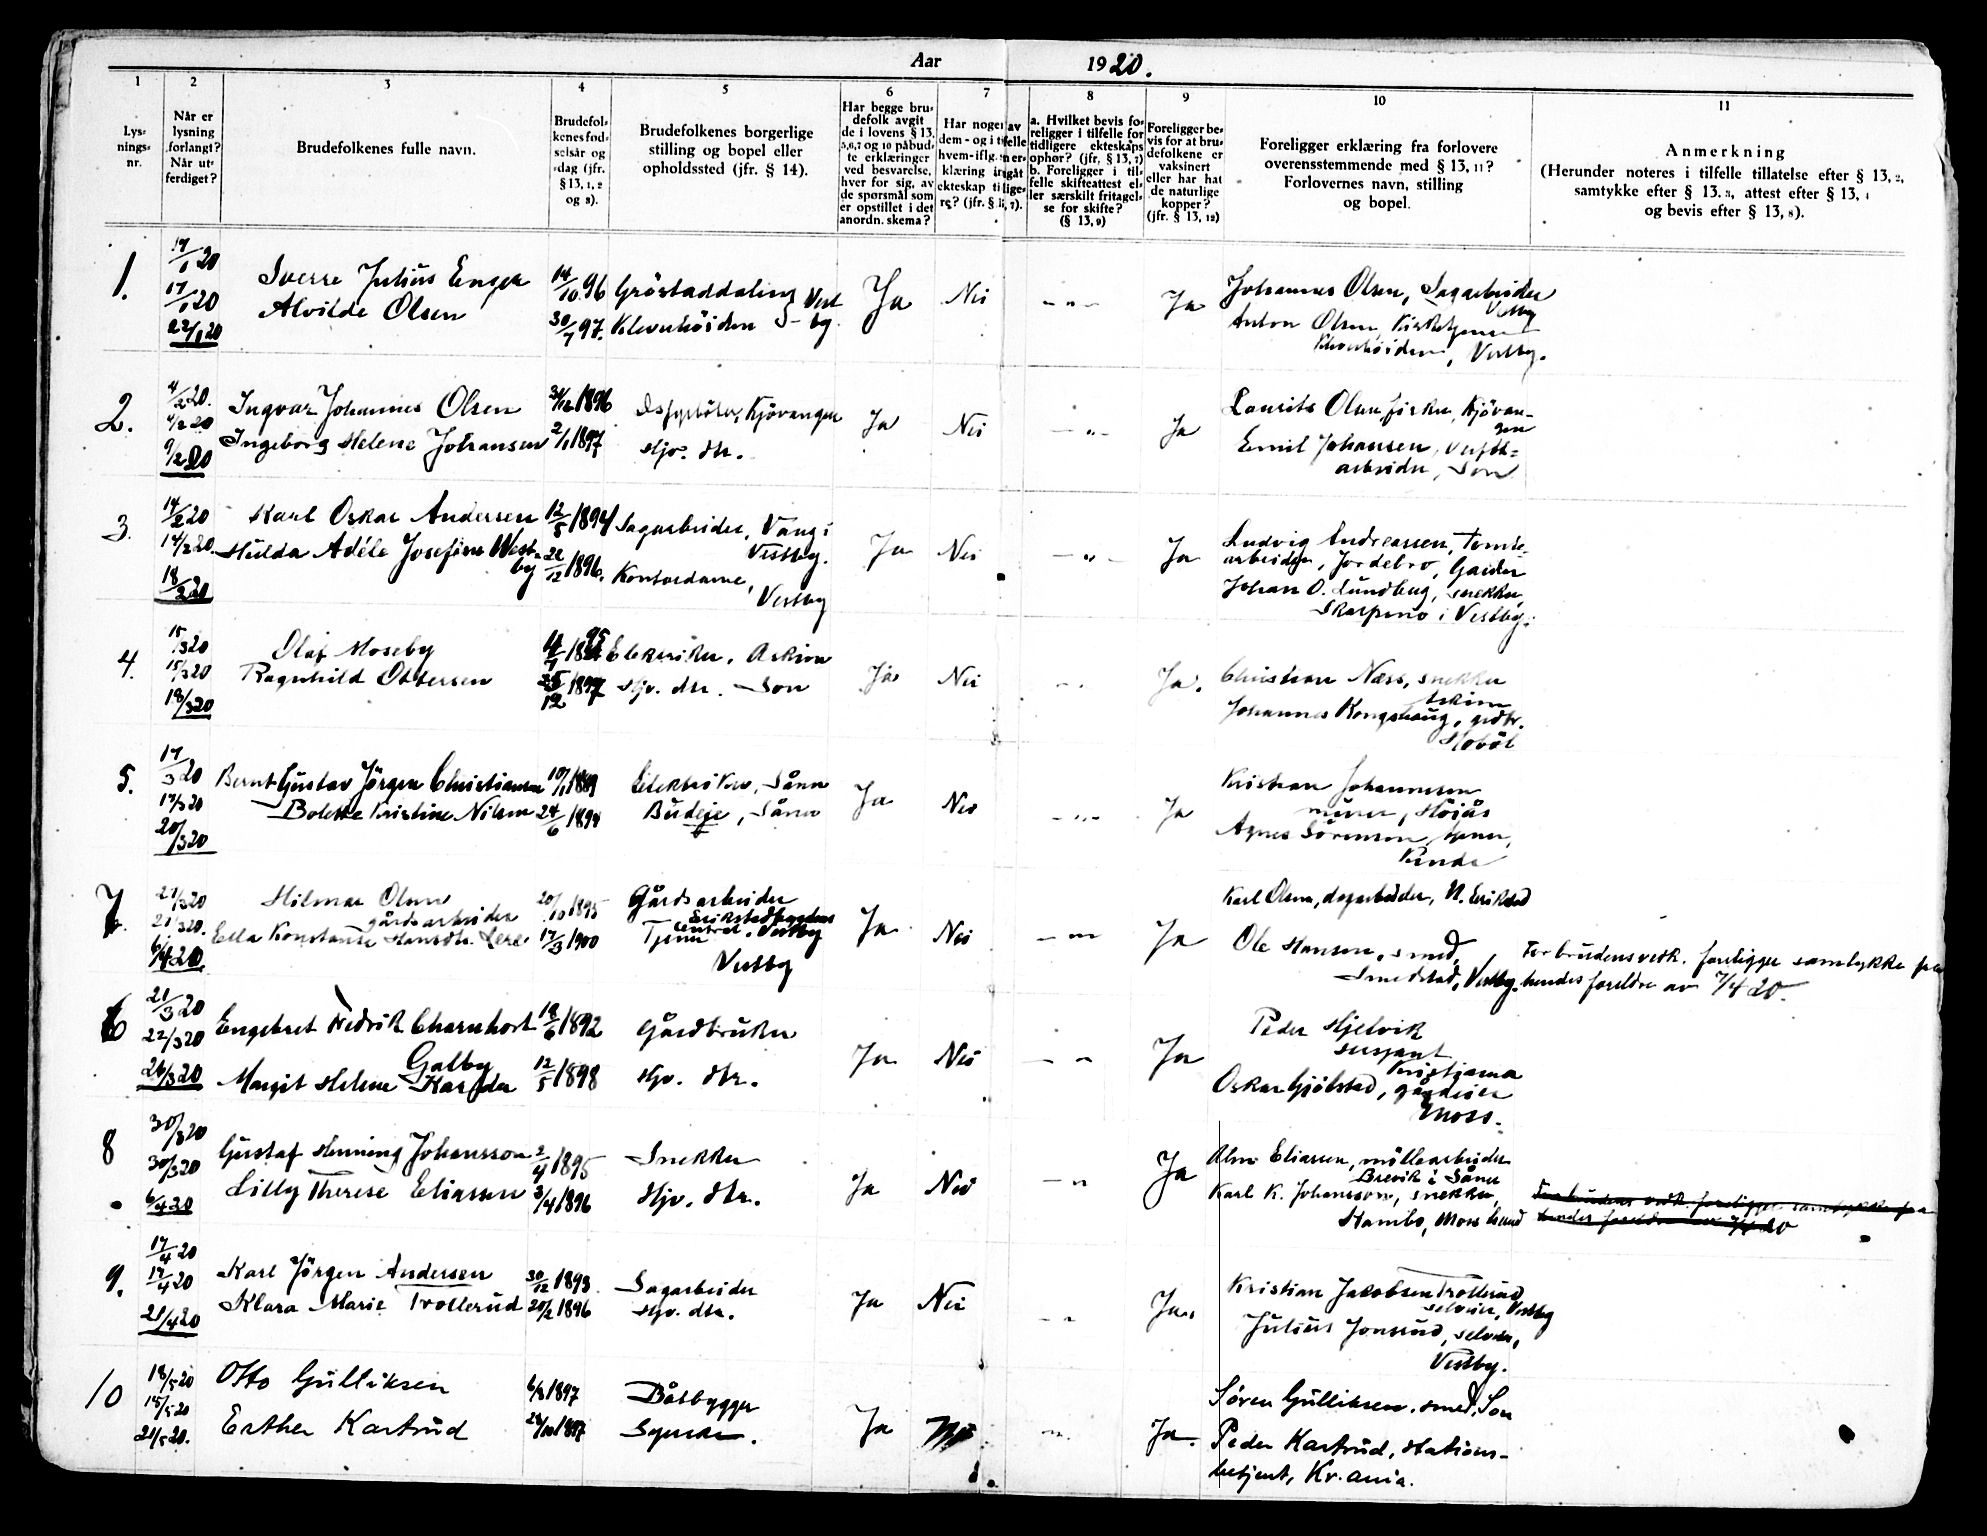 Aar 1920.
1
Lysnings-
nr.
2
Når er
lysning
forlangt?
Når ut-
ferdiget?
3
Brudefolkenes fulle navn.
4
Brudefol-
kenes fød-
selsår og
-dag (jfr.
§ 13, 1, 2
og 8).
5
Brudefolkenes borgerlige
stilling og bopel eller
opholdssted (jfr. § 14).
6
Har begge bru-
defolk avgit
de i lovens § 13,
5,6,7 og 10 påbud-
te erklæringer
ved besvarelse,
hver for sig, av
de spørsmål som
er opstillet i det
anordn. skema?
7
Har nogen av
dem - og i tilfelle
hvem - iflg. en er-
klæring indgått
ekteskap tidlige-
re? (jfr. § 13, 7).
8
a. Hvilket bevis fo-
religger i tilfelle for
tidligere ekteskaps
ophør? (jfr. § 13, 7)
b. Foreligger i til-
felle skifteattest el-
ler særskilt fritagel-
se for skifte?
(§ 13, 9)
9
Foreligger be-
vis for at bru-
defolkene er
vaksinert
eller har hat
de naturlige
kopper?
(jfr. § 13, 12)
10
Foreligger erklæring fra forlovere
overensstemmende med § 13, 11?
Forlovernes navn, stilling
og bopel.
11
Anmerkning
(Herunder noteres i tilfelle tillatelse efter § 13, 2,
samtykke efter § 13. 3, attest efter § 13, 4
og bevis efter § 13, 8).
1.
17/1 20
17/1 20
22/1 20
Sverre Julius Enger
Alvilde Olsen
14/10 96
30/7 97.
Gröstaddaling Vest
Klevenhöiden by
Ja
Nei
- " -
Ja
Johannes Olsen, Sagarbeider
Vestby
Anton Olsen, Kirketjener
Klevenhöiden, Vestby.
2.
4/2 20.
4/2 20
9/2 20
Ingvar Johannes Olsen
Ingeborg Helene Johansen
31/12 1896
2/1 1897
Kjövangen
Hjv. dtr.
Ja
Nei
- " -
Ja
Laurits Olsen fisker, Kjövan-
gen
Emil Johansen, verfts-
arbeider, Son
3.
14/2 20
14/2 20.
18/2 20
Karl Oskar Andersen
Hulda Adéle Josefine West-
by
12/5 1894
22/12 1896.
Sagarbeider, Vang i
Vestby.
Kontordame,
Vestby
Ja
Nei
- " -
Ja
Ludvig Andreassen, Tomte-
arbeider, Jordebro, Garder
Johan O. Lundbug, snekker,
Skarpeno i Vestby.
4.
15/3 20
15/3 20
18/3 20
Olaf Moseby
Ragnhild Ottersen
95
25/12 1897
Elektriker. Askim
Hjv. dtr. Son
Ja
Nei
- -
Ja.
Christian Næss, snekker
Askim
Johannes Kongshaug, grdbr.
Hobøl
5.
17/3 20
17/3 20
20/3 20
Bernt Gustav Jörgen Christiansen
Bolette Kristine Nilsen
10/1 1889
24/6 1898
Elektriker, Såner
Budeje, Såner
Ja
Nei
- " -
Ja
Kristian Johannesen
murer, Höjås
Agnes Sörensen, tjener,
Kinda
7.
21/3 20
21/3 20.
6/4 20.
Hilmar Olsen
gårdsarbeider
Ella Konstanse Hansdtr. Lere
20/10 1895
17/3 1900
Gårdsarbeider
Erikstadbygdens
central. Vestby
Tjener
Vestby
Ja
Nei
- " -
Ja
Karl Olsen, dagarbeider, N. Erikstad
Ole Hansen, smed,
Smedstad, Vestby.
For brudens vedk. foreligger samtykke fra
hendes foreldre av 7/4 20.
6
21/3 20
22/3 20
26/3 20
Engebret Fredrik Charnhort
Galby
Margit Helene Karlsen
18/6 1892
12/5 1898
Gårdbruker
Hjv. dtr.
Ja
Nei
- "
Ja
Peder Hjelvik
sersjant
Kristiania
Oskar Gjölstad, gårdeier
Moss.
8
30/3 20
30/3 20
6/4 20
Gustaf Henning Johansson
Lilly Therese Eliassen
2/4 1895
3/4 1896
Snekker
Hjv. dtr.
Ja
Nei
- "
Ja
Alm Eliassen, möllearbeider
Brevik i Såner
Karl K. Johansson, snekker,
Stambo, Moss land
For brudens vedk. foreligger samtykke fra
hendes foreldre av 7/4 20
9.
17/4 20
17/4 20
21/4 20
Karl Jörgen Andersen
Klara Marie Trollerud
30/12 1893
20/2 1896
Sagarbeider
Hjv. dtr.
Ja
Nei
- "
Ja.
Kristian Jakobsen Trollerud
selveier, Vestby
Julius Jonsrud, selveier,
Vestby.
10
18/5 20
18/5 20
21/5 20.
Otto Gulliksen
Esther Kastrud
6/3 1897
24/10 1897
Båtbygger
Syerske.
Ja
Nei
"
Ja.
Søren Gulliksen, smed, Son
Peder Kastrud, stations-
betjent, Kr.ania.